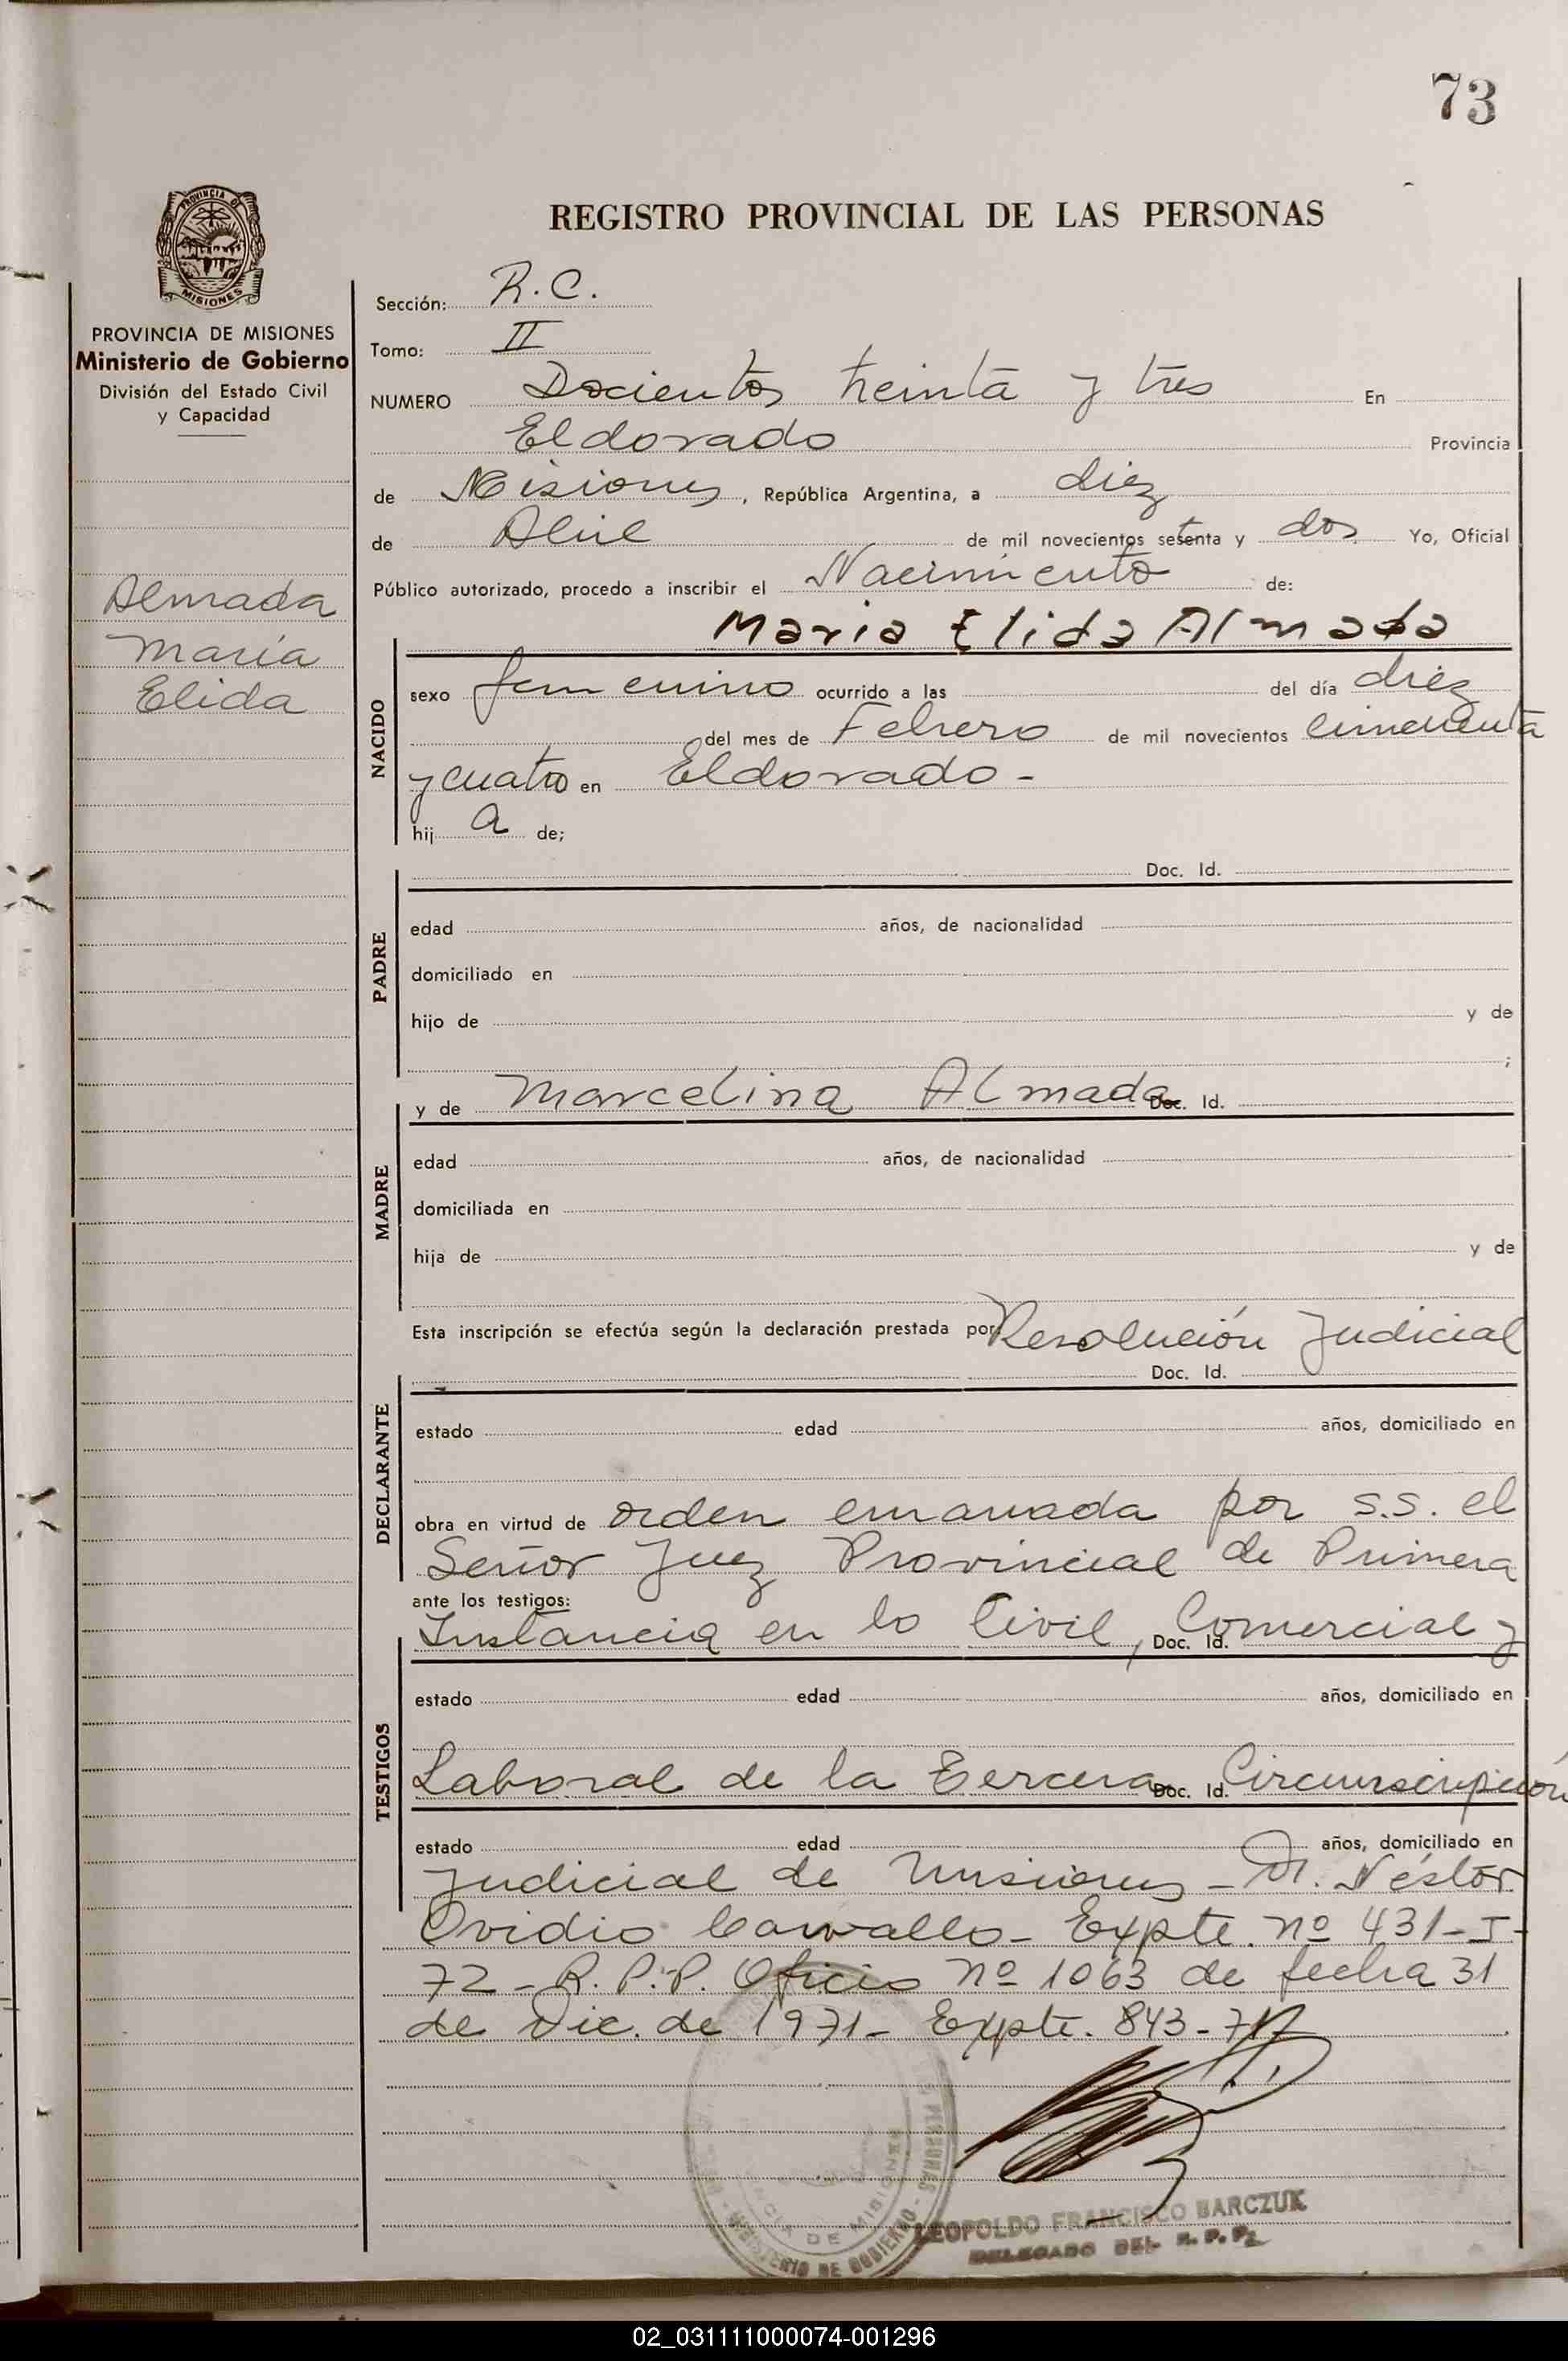 73
PROVINCIA DE
MISIONES
PROVINCIA DE MISIONES
Ministerio de Gobierno
División del Estado Civil
y Capacidad
Almada
María
Elida
REGISTRO PROVINCIAL DE LAS PERSONAS
Sección: R.C.
Tomo: II
NUMERO Docientos treinta y tres En
Eldorado Provincia
de Misiones, República Argentina, a diez
de Abril de mil novecientos setenta y dos Yo, Oficial
Público autorizado, procedo a inscribir el Nacimiento de:
Maria Elida Almada
NACIDO
sexo femenino ocurrido a las del día diez
del mes de Febrero de mil novecientos cincuenta
y cuatro en Eldorado-
hij a de;
PADRE
Doc. Id.
edad años, de nacionalidad
domiciliado en
hijo de y de
;
MADRE
y de Marcelina Almada Doc. Id.
edad años, de nacionalidad
domiciliada en
hija de y de
Esta inscripción se efectúa según la declaración prestada por Resolución Judicial
DECLARANTE
Doc. Id.
estado edad años, domiciliado en
obra en virtud de orden emanada por S.S. el
Señor Juez Provincial de Primera
ante los testigos:
Instancia en lo Civil, Comercial y
Doc. Id.
TESTIGOS
estado edad años, domiciliado en
Laboral de la Tercera Circunscripción
Doc. Id.
estado edad años, domiciliado en
Judicial de Misiones - Dr. Néstor
Ovidio Carvallo- Expte. nº 431-I-
72- R.P.P. Oficio nº 1063 de fecha 31
de Dic. de 1971- Expte. 843-71
PERSONAS
PROVINCIA DE MISIONES
MINISTERIO DE GOBIERNO
LEOPOLDO FRANCISCO BARCZUK
DELEGADO DEL R.P.P.
02_031111000074-001296